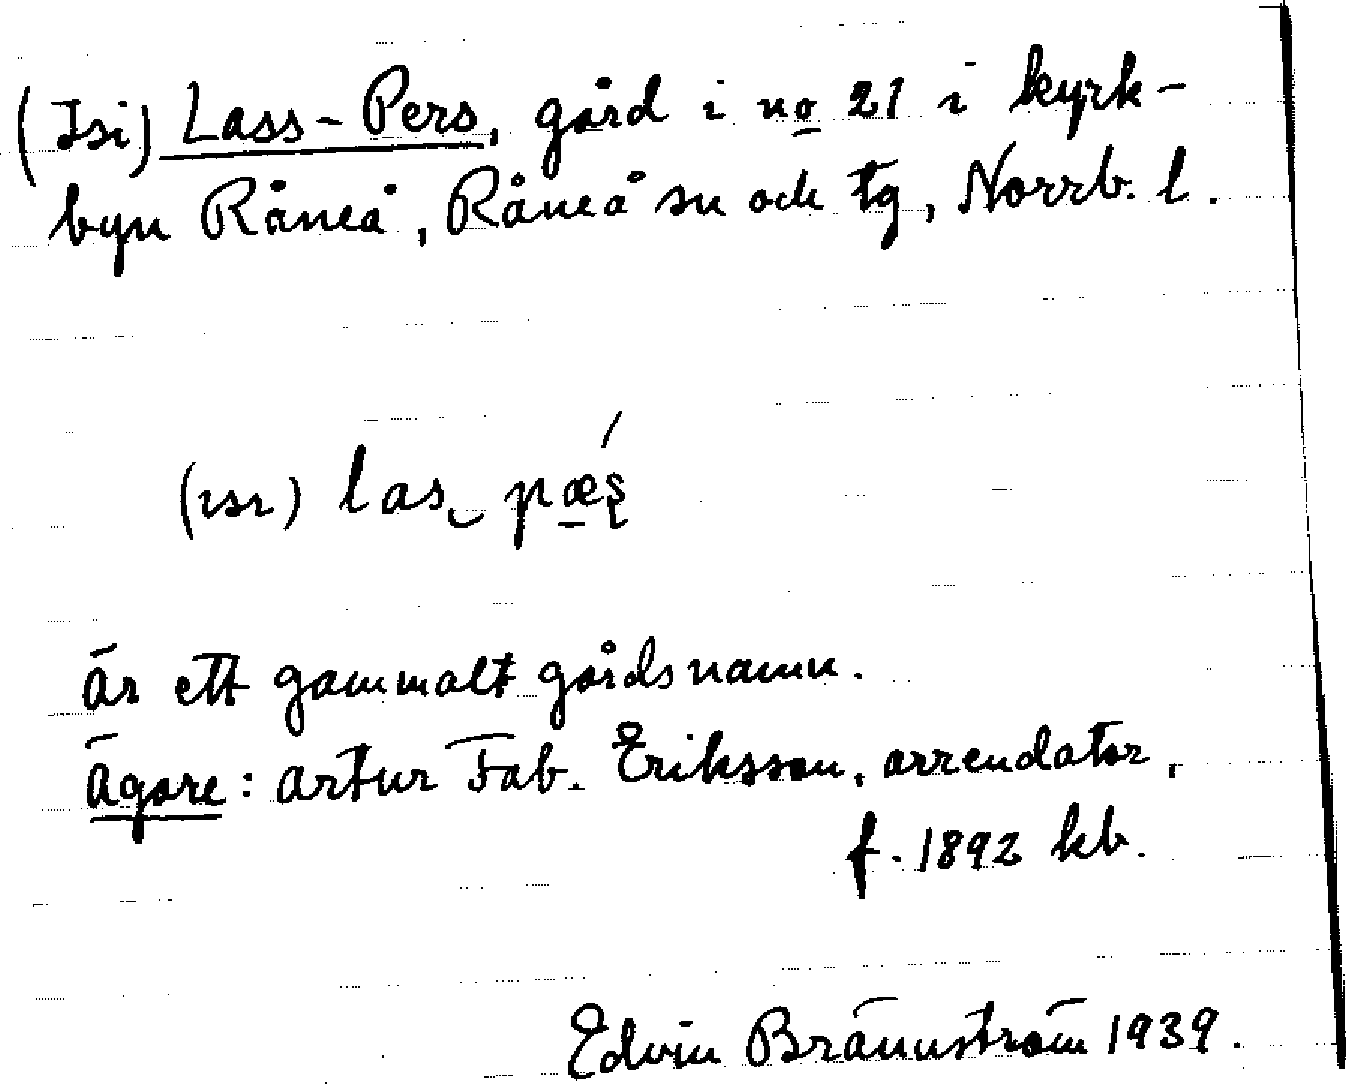 (Isi) Lass-Pers, gård i no 21 i kyrk-
byn Råneå, Råneå sn och tg, Norrb. l.
(ɪsɪ) las‿ pǽ̱ʂ
är ett gammalt gårdsnamn.
ägare: artur Fab. Eriksson, arrendator,
f. 1892 kb.
Edvin Brännström 1939.